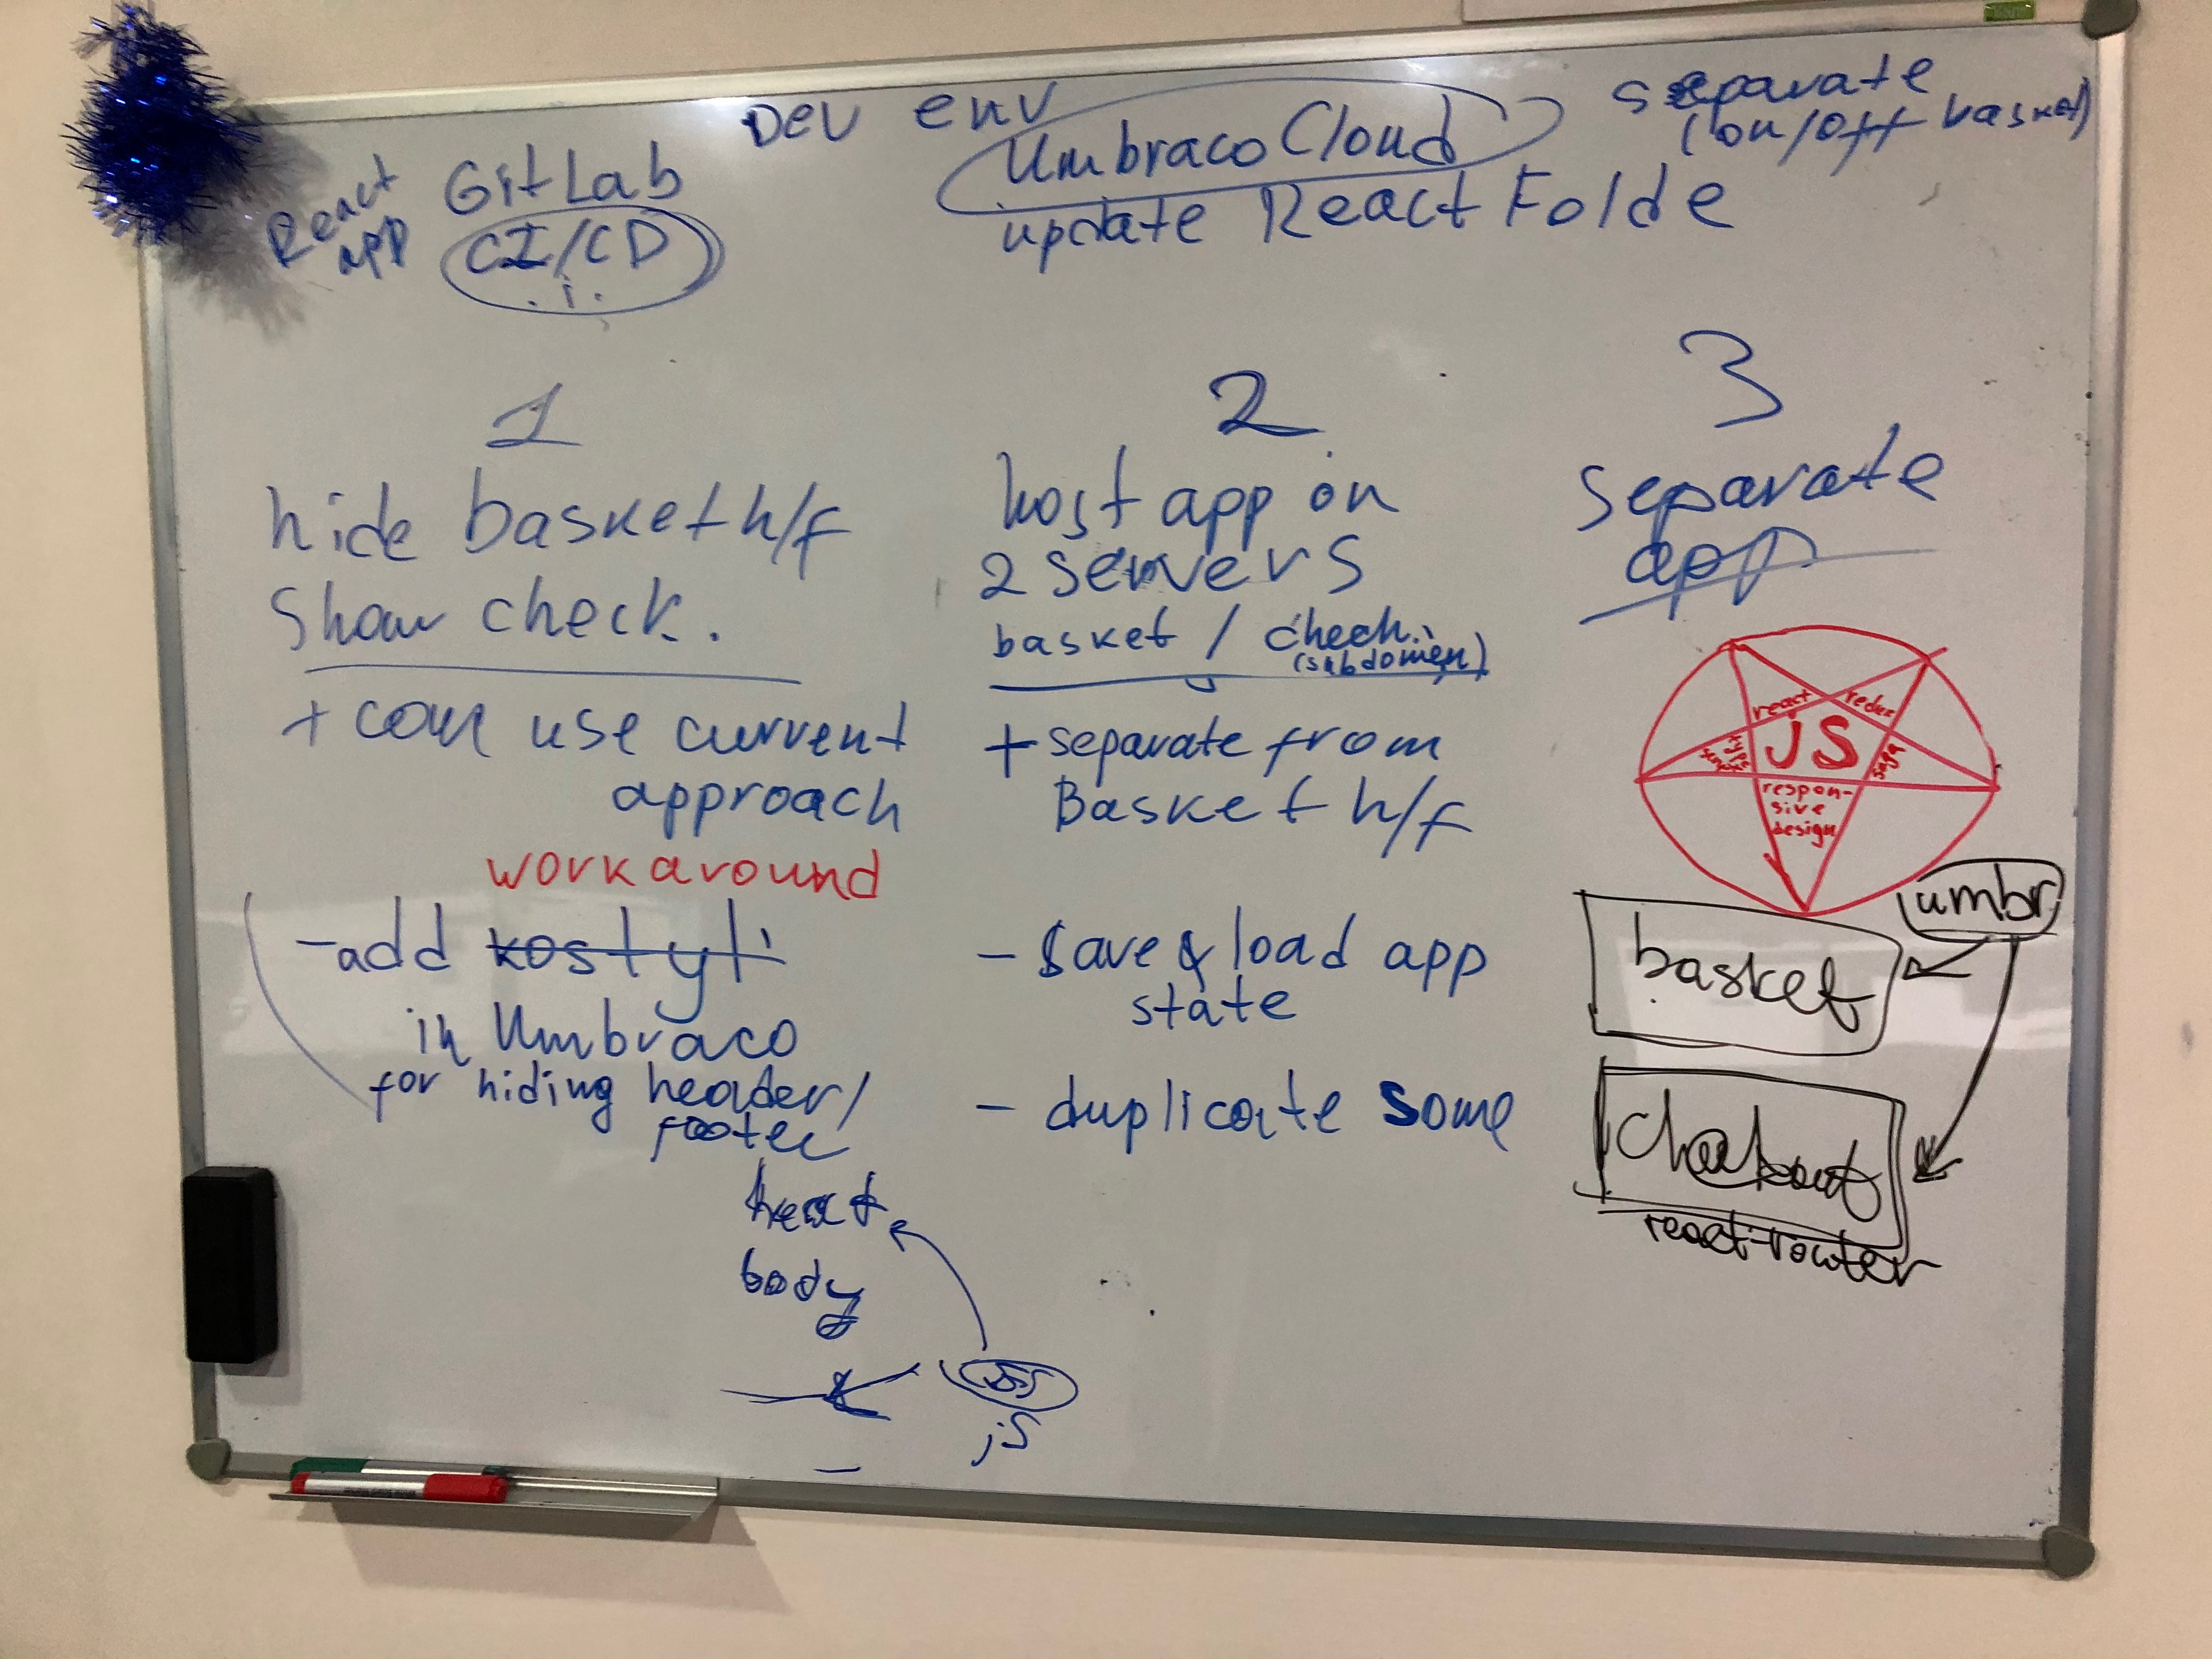 Dev env
React
app
GitLab
CI/CD
Umbraco Cloud
update React Folde
separate
(on/off basket)
1
hide basket h/f
Show check.
+ can use current
approach
workaround
- add kostyli
in Umbraco
for hiding header/
footer
body
js
2
host app on
2 servers
basket / check.
(subdomen)
+ separate from
Basket h/f
- save & load app
state
- duplicate some
3
separate
app
react
redux
JS
type
script
saga
respon-
sive
design
umbr
basket
Checkout
react-router